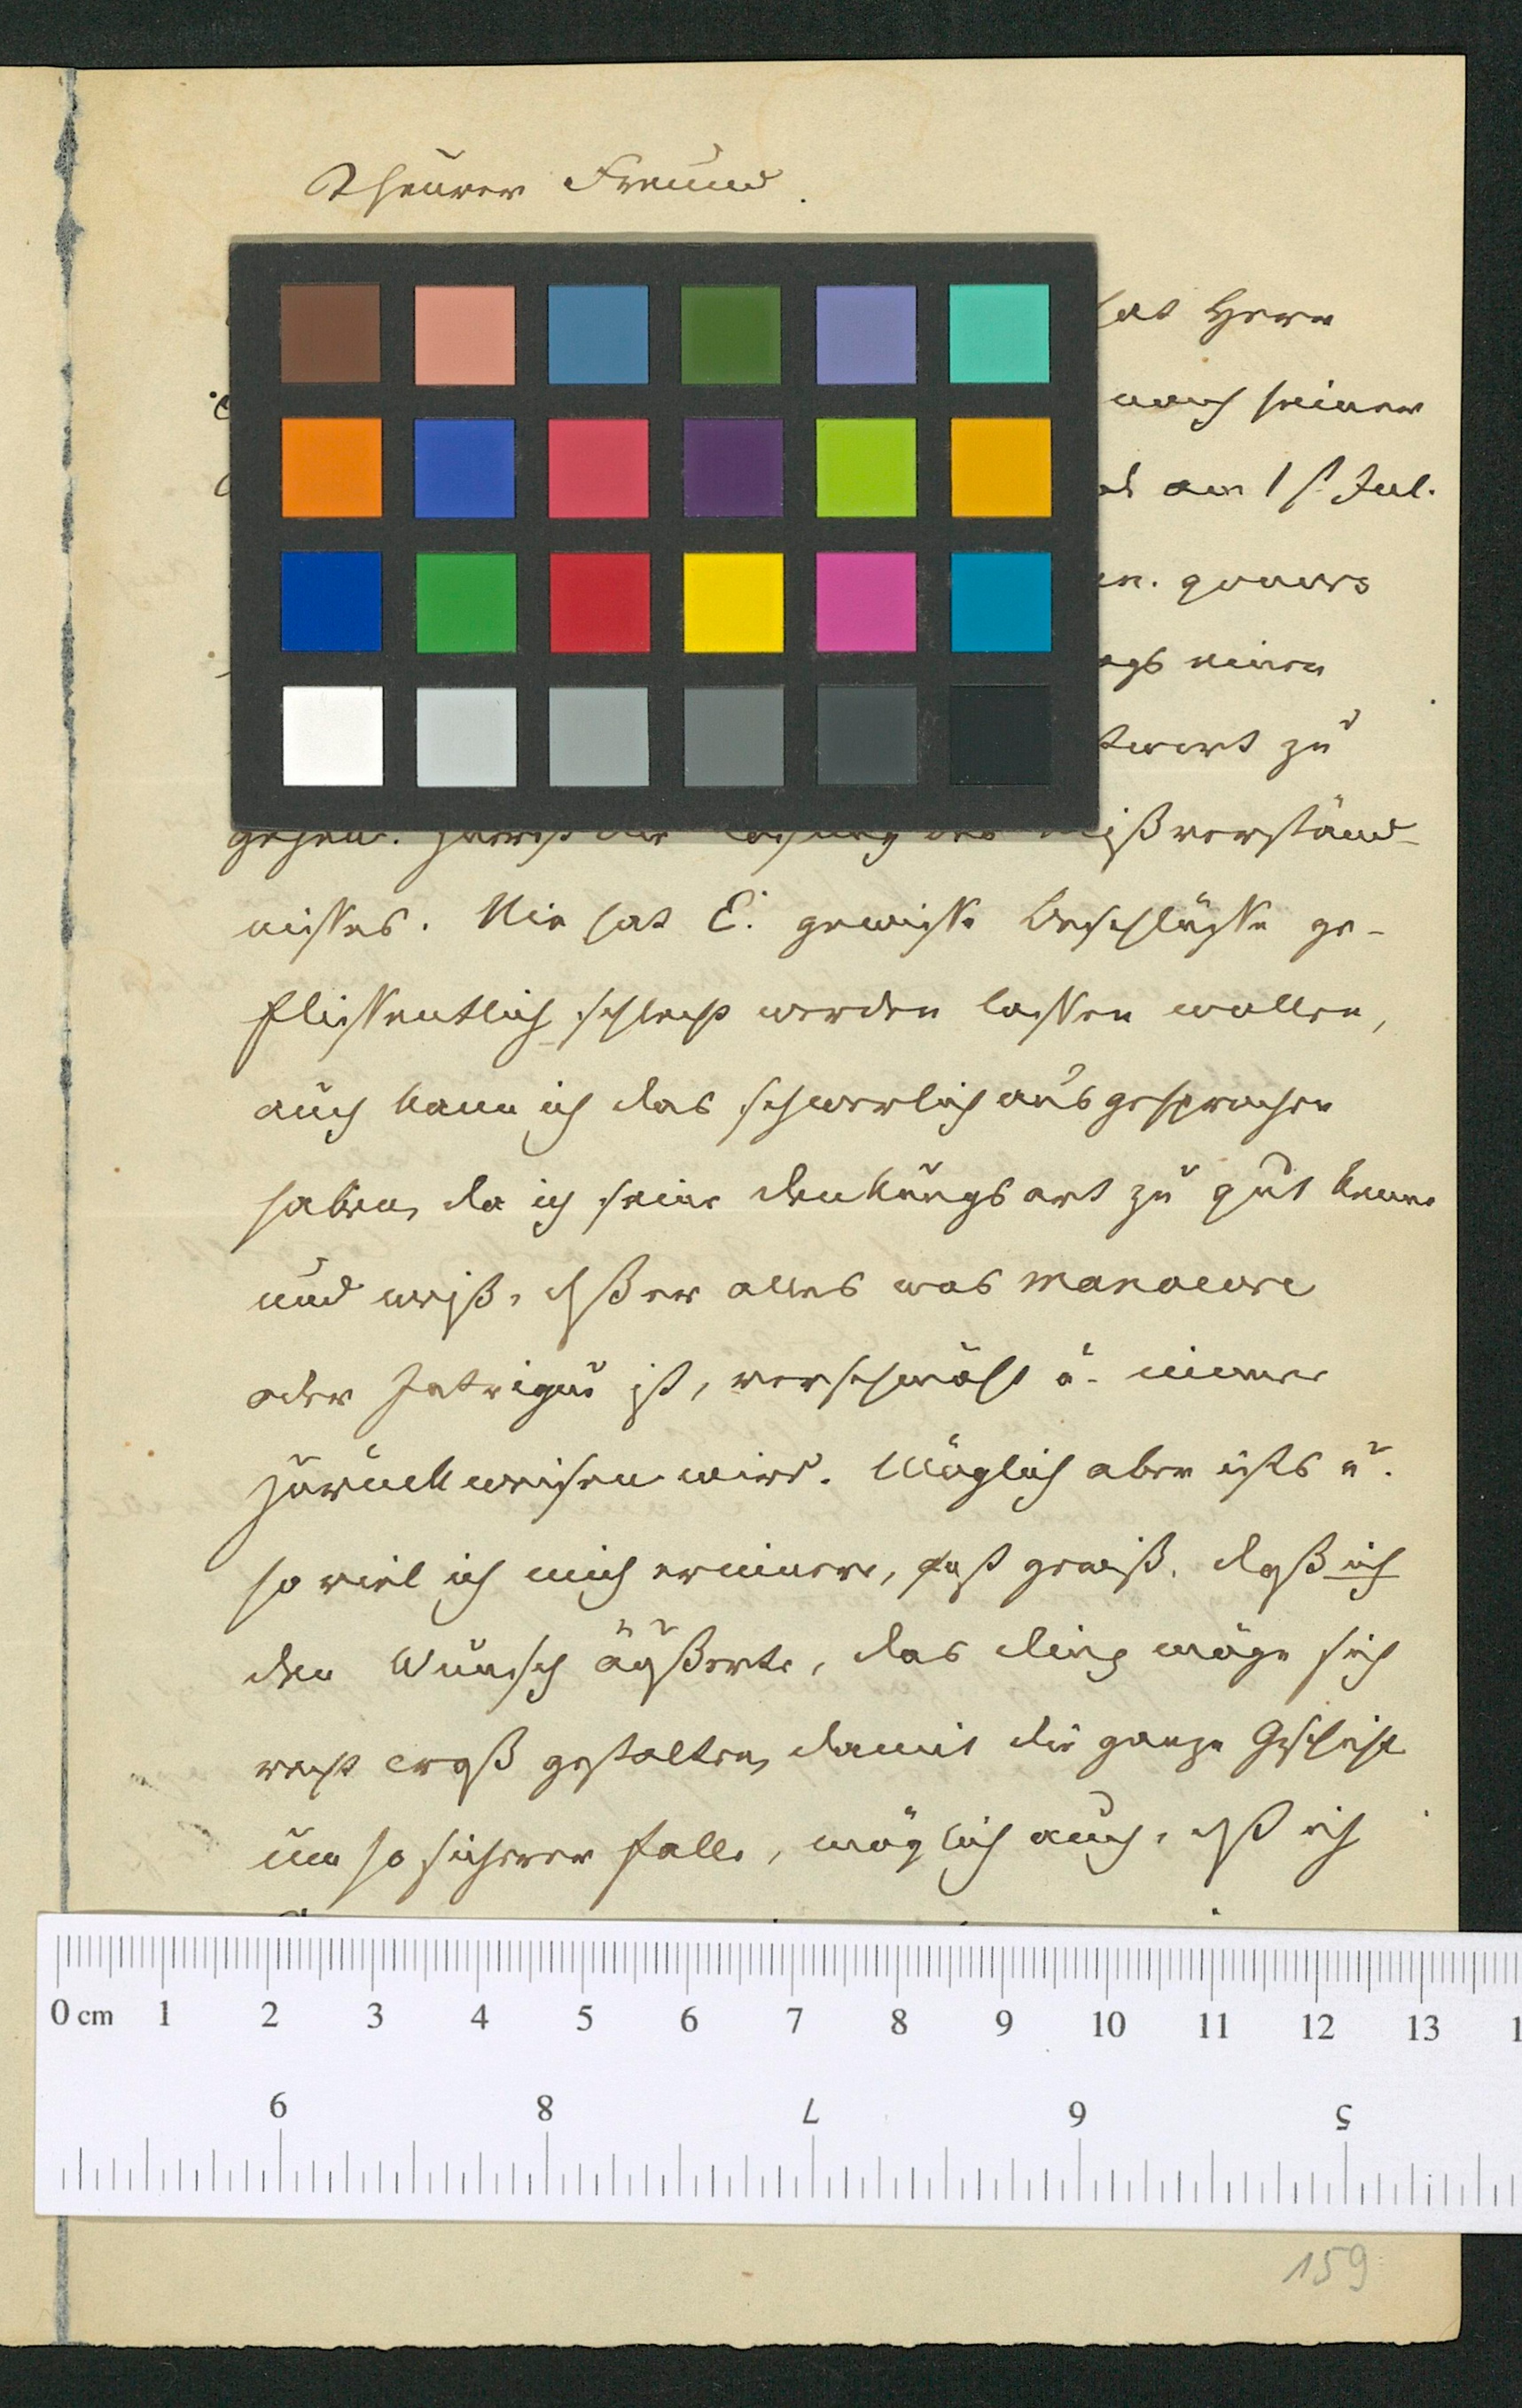 Theurer Freund.
hat Herrn
nach seiner
am 1st Jul.
genaues
einen
zu
geben. Zuerst die Lösung des Mißverständ-
nisses. Nie hat E. gewisse Beschlüsse ge-
flissentlich schlecht werden lassen wollen,
auch kann ich das schwerlich ausgesprochen
haben, da ich seine Denkungsart zu gut kenne
und weiß, dß er alles was manoeuvre
oder Intrigue ist, verschmäht u. immer
zurückweisen wird. Möglich aber ists u.
so viel ich mich erinnere, fast gewiß, daß ich
den Wunsch äußerte, das Ding möge sich
recht craß gestalten, damit die ganze Geschichte
um so sicherer falle, möglich auch, dß ich
0 cm 1 2 3 4 5 6 7 8 9 10 11 12 13 1
9 8 7 6 5
159